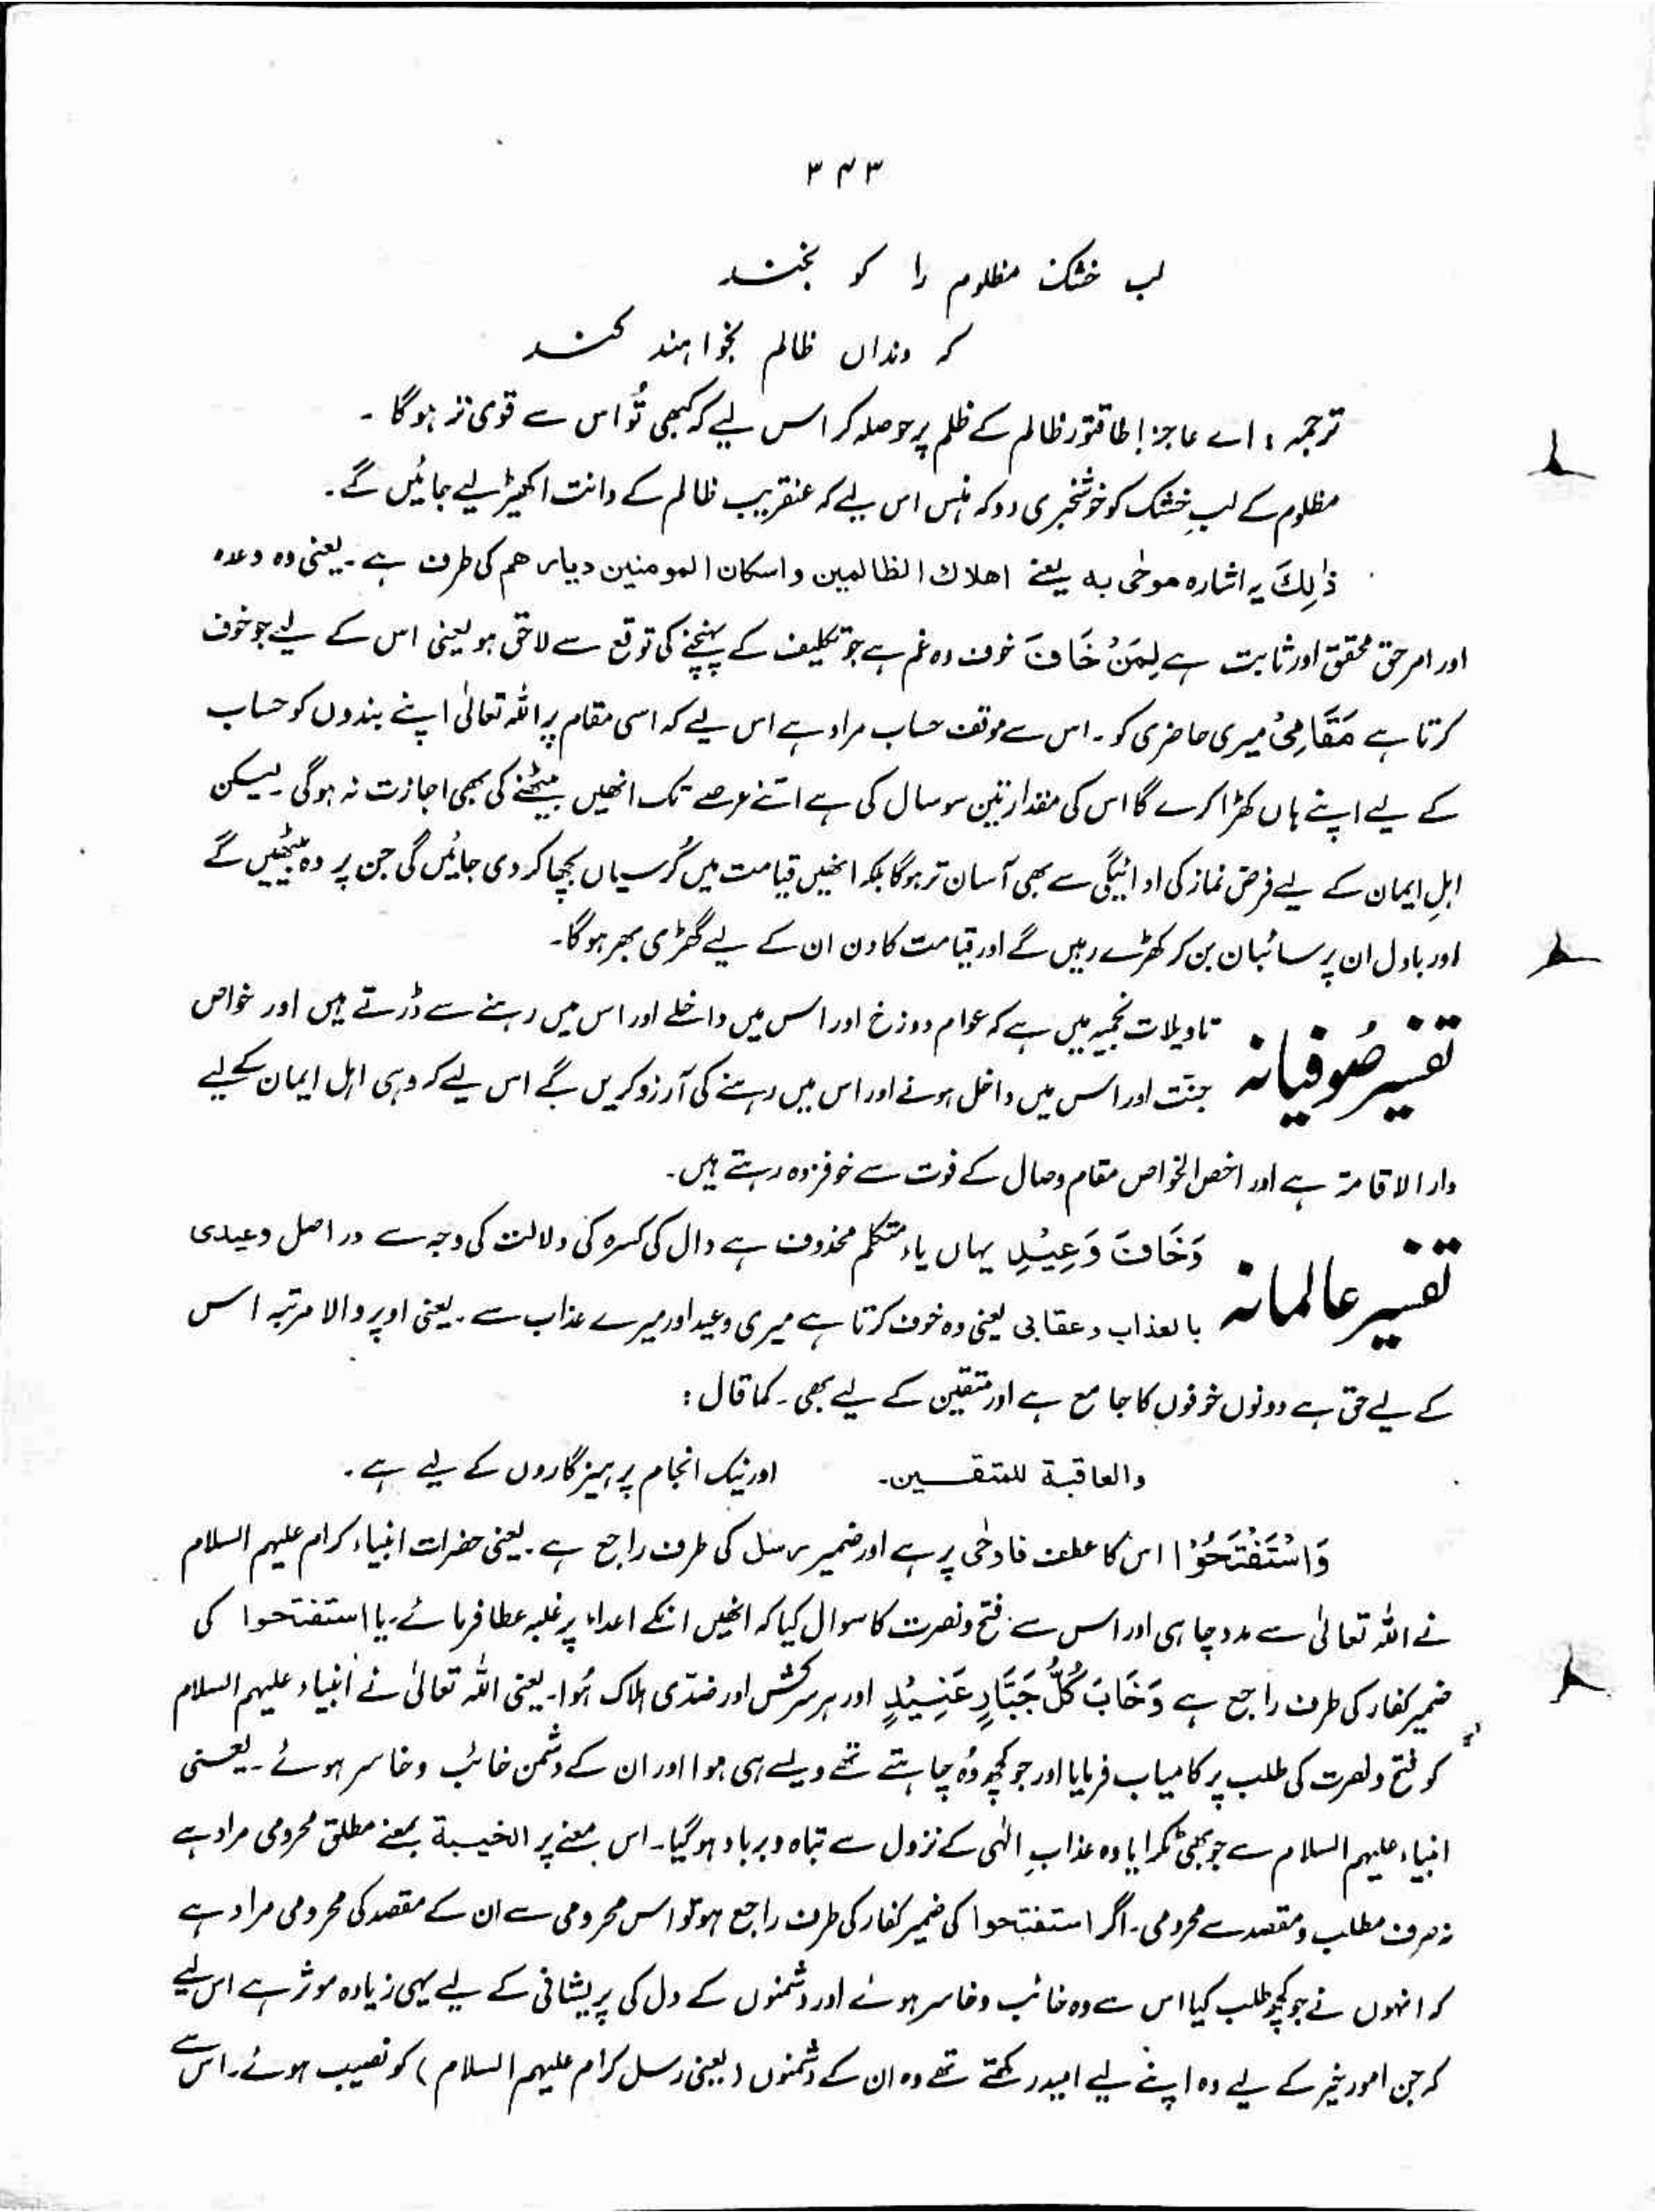 ۳۴۳
لب خشک مظلوم را گو بخند
کہ دنداں ظالم بخواہند کند
ترجمہ: اے عاجز! طاقتور ظالم کے ظلم پر حوصلہ کر اس لیے کہ کبھی تُو اس سے قوی تر ہوگا۔
مظلوم کے لبِ خشک کو خوشخبری دو کہ ہنس اس لیے کہ عنقریب ظالم کے دانت اکھیڑ لیے جائیں گے۔
ذٰلِكَ یہ اشارہ موحٰی بہ یعنے اھلاك الظالمین واسکان المومنین دیارھم کی طرف ہے۔ یعنی وہ وعدہ
اور امر حق محقق اور ثابت ہے لِمَنْ خَافَ خوف وہ غم ہے جو تکلیف کے پہنچنے کی توقع سے لاحق ہو یعنی اس کے لیے جو خوف
کرتا ہے مَقَامِیْ میری حاضری کو۔ اس سے موقف حساب مراد ہے اس لیے کہ اسی مقام پر اللہ تعالیٰ اپنے بندوں کو حساب
کے لیے اپنے ہاں کھڑا کرے گا اس کی مقدار تین سو سال کی ہے اتنے عرصے تک انھیں بیٹھنے کی بھی اجازت نہ ہوگی لیکن
اہلِ ایمان کے لیے فرض نماز کی ادائیگی سے بھی آسان تر ہوگا بلکہ انھیں قیامت میں کُرسیاں بچھا کر دی جائیں گی جن پر وہ بیٹھیں گے
اور بادل ان پر سائبان بن کر کھڑے رہیں گے اور قیامت کا دن ان کے لیے گھڑی بھر ہوگا۔
تفسیر صُوفیانہ تاویلات نجمیہ میں ہے کہ عوام دوزخ اور اس میں داخلے اور اس میں رہنے سے ڈرتے ہیں اور خواص
جنّت اور اس میں داخل ہونے اور اس میں رہنے کی آرزو کریں گے اس لیے کہ وہی اہل ایمان کے لیے
دار الاقامۃ ہے اور اخص الخواص مقام وصال کے فوت سے خوفزدہ رہتے ہیں۔
تفسیر عالمانہ وَخَافَ وَعِیْدِ یہاں یاء متکلم محذوف ہے دال کی کسرہ کی دلالت کی وجہ سے دراصل وعیدی
بالعذاب وعقابی یعنی وہ خوف کرتا ہے میری وعید اور میرے عذاب سے۔ یعنی اوپر والا مرتبہ اس
کے لیے حق ہے دونوں خوفوں کا جامع ہے اور متقین کے لیے بھی۔ کما قال:
والعاقبة للمتقین۔ اور نیک انجام پرہیزگاروں کے لیے ہے۔
وَاسْتَفْتَحُوْا اس کا عطف فاوحٰی پر ہے اور ضمیر رسل کی طرف راجع ہے۔ یعنی حضرات انبیاء کرام علیہم السلام
نے اللہ تعالیٰ سے مدد چاہی اور اس سے فتح و نصرت کا سوال کیا کہ انھیں انکے اعداء پر غلبہ عطا فرمائے۔ یا استفتحوا کی
ضمیر کفار کی طرف راجع ہے وَخَابَ كُلُّ جَبَّارٍ عَنِیْدٍ اور ہر سرکش اور ضدّی ہلاک ہُوا۔ یعنی اللہ تعالیٰ نے انبیاء علیہم السلام
کو فتح و نصرت کی طلب پر کامیاب فرمایا اور جو کچھ وُہ چاہتے تھے ویسے ہی ہوا اور ان کے دشمن خائب و خاسر ہوئے۔ یعنی
انبیاء علیہم السلام سے جو بھی ٹکرایا وہ عذابِ الٰہی کے نزول سے تباہ و برباد ہوگیا۔ اس معنے پر الخیبة بمعنے مطلق محرومی مراد ہے
نہ صرف مطلب و مقصد سے محرومی۔ اگر استفتحوا کی ضمیر کفار کی طرف راجع ہو تو اس محرومی سے ان کے مقصد کی محرومی مراد ہے
کہ انہوں نے جو کچھ طلب کیا اس سے وہ خائب و خاسر ہوئے اور دشمنوں کے دل کی پریشانی کے لیے یہی زیادہ موثر ہے اس لیے
کہ جن امور خیر کے لیے وہ اپنے لیے امید رکھتے تھے وہ ان کے دشمنوں (یعنی رسل کرام علیہم السلام) کو نصیب ہوئے۔ اس سے